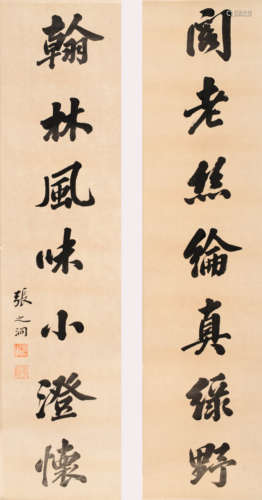 閣老絲綸真綠野
翰林風味小澄懷
張之洞